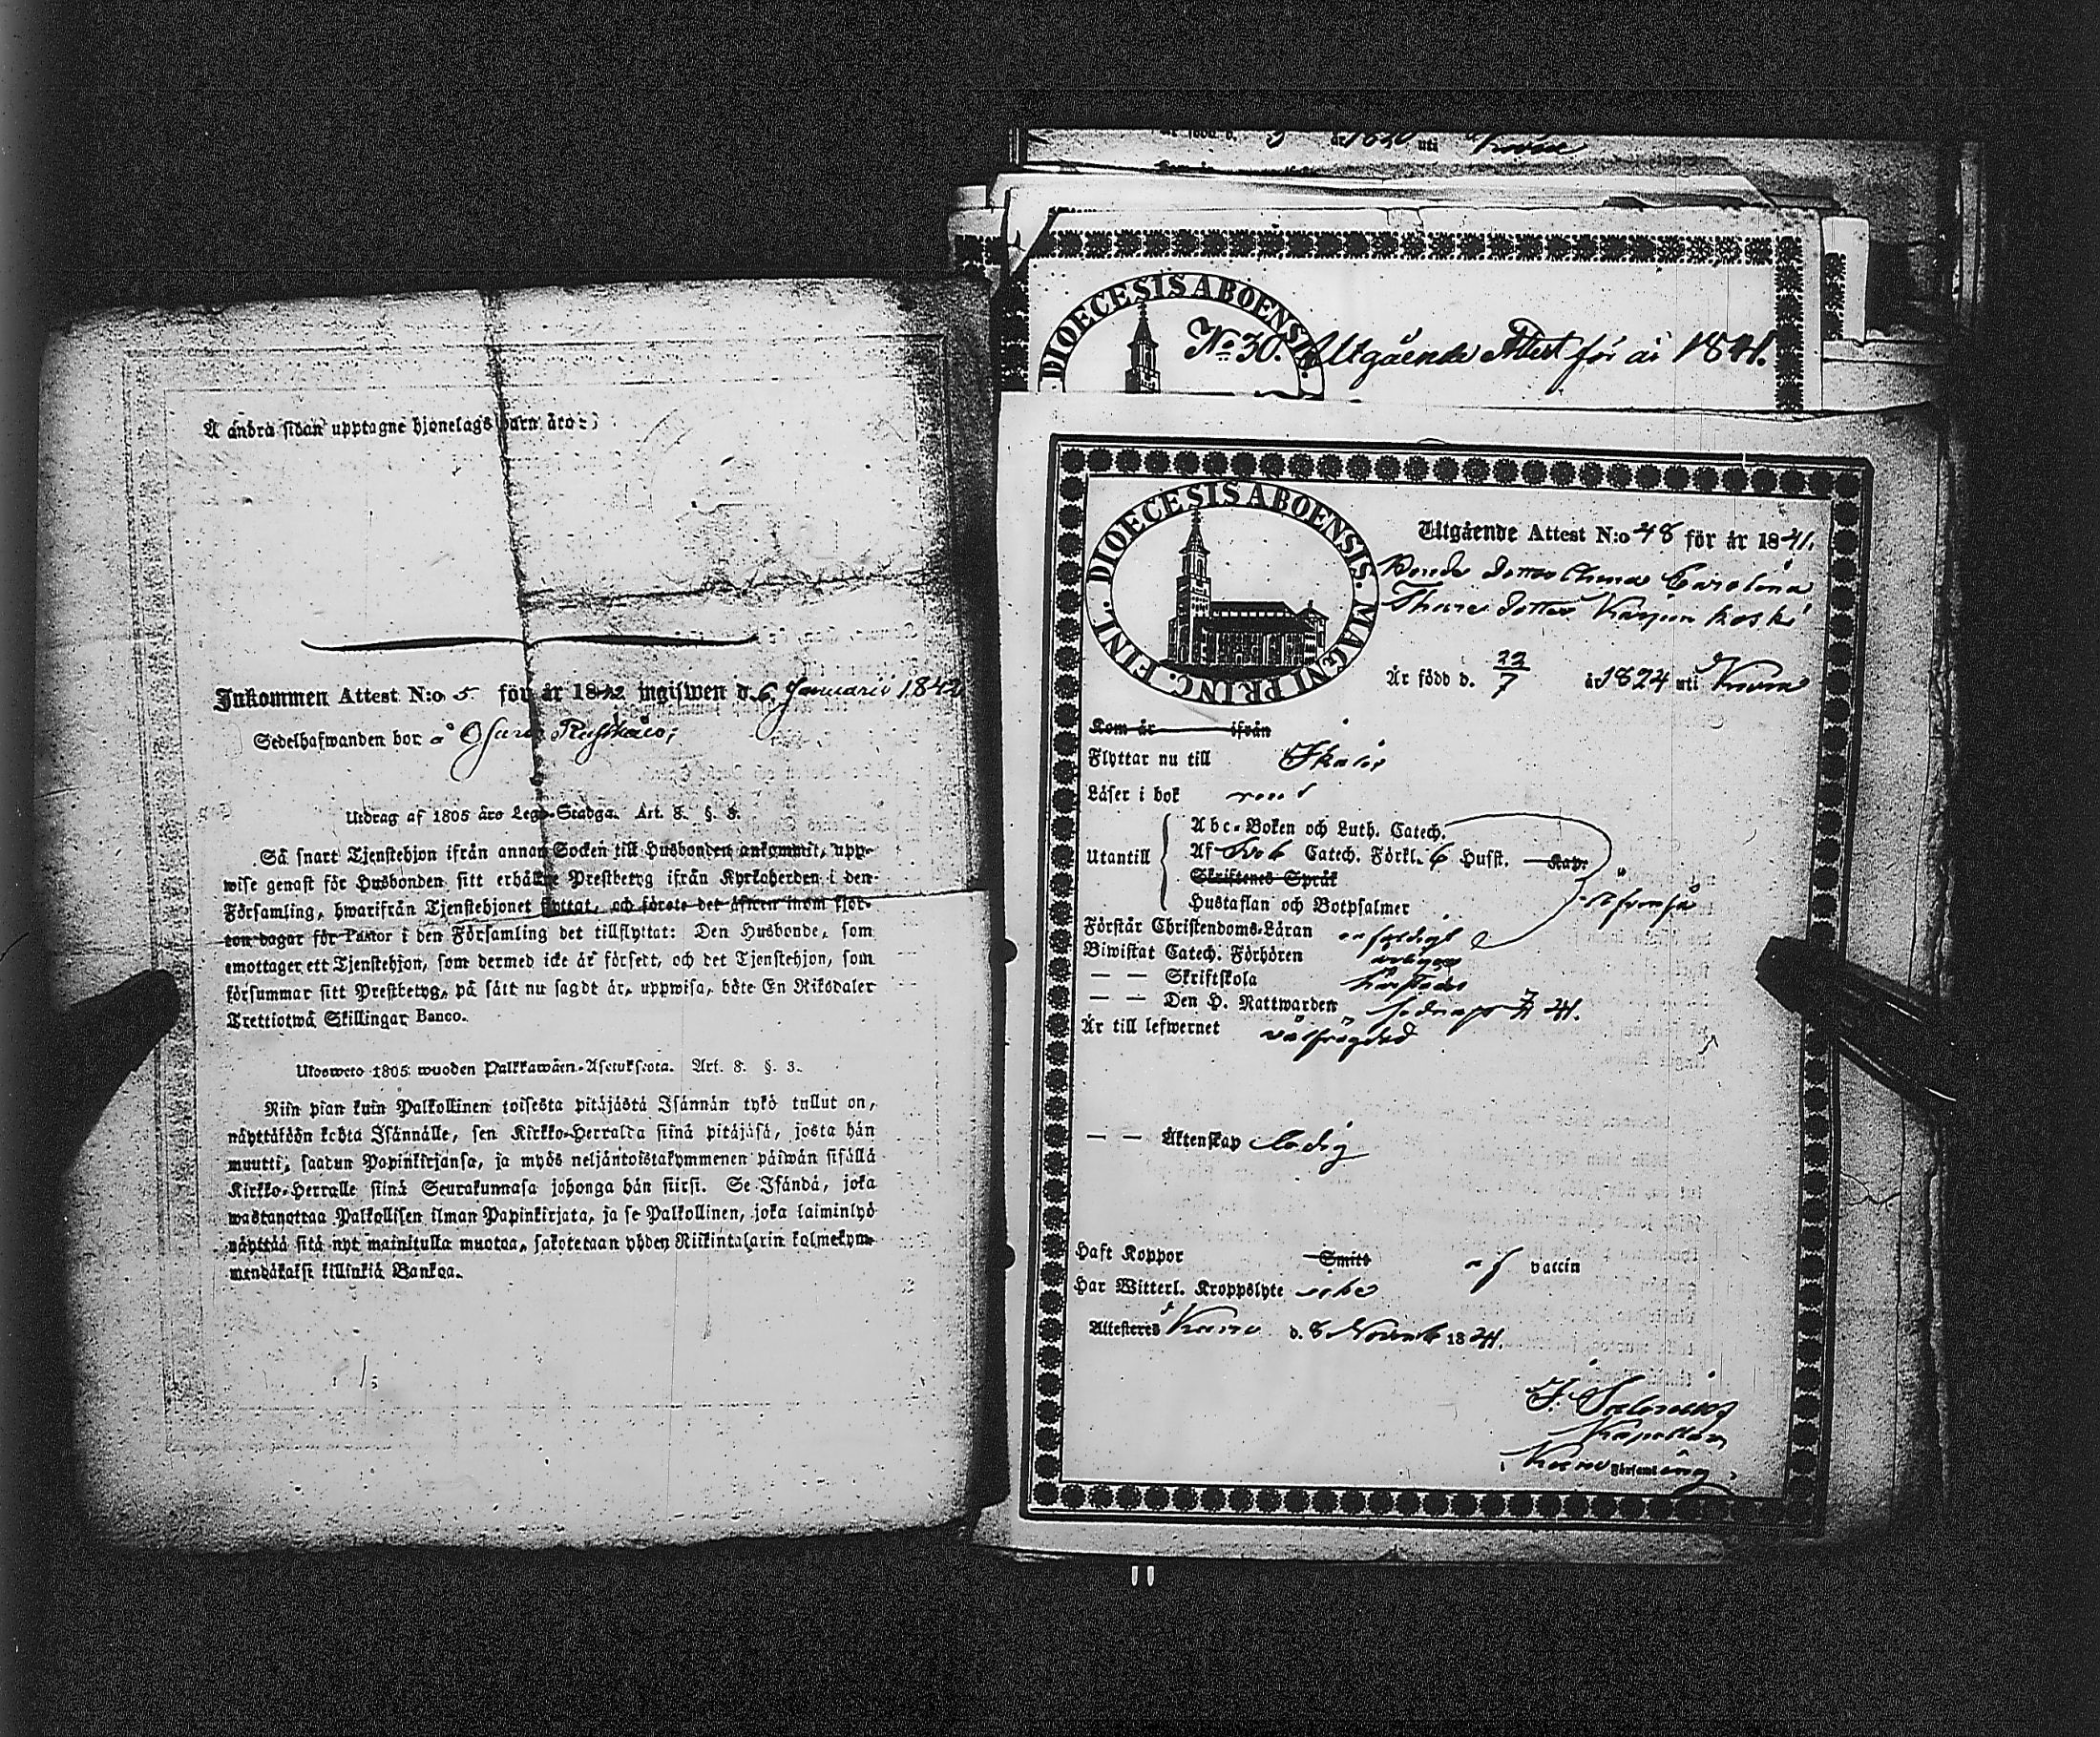 Å andra sidan upptagne hjonelags barn äro:
Inkommen Attest N:o 5 för år 1842 ingifwen d. 6 Januarii 1842
Sedelhafwanden bor å
Utdrag af 1805 års Lego-Stadga. Art. 8. §. 3.
Så snart Tjenstehjon ifrån annan Socken till Husbonden ankommit, upp-
wise genast för Husbonden sitt erhållne Prestbetyg ifrån Kyrkoherden i den
Församling, hwarifrån Tjenstehjonet flyttat, och förete det äfwen inom fjor-
ton dagar för Pastor i den Församling det tillflyttat: Den Husbonde, som
emottager ett Tjenstehjon, som dermed icke är försedt, och det Tjenstehjon, som
försummar sitt Prestbetyg, på sätt nu sagdt är, uppwisa, böte En Riksdaler
Trettiotwå Skillingar Banco.
Ulosweto 1805 wuoden Palkkawäen-Asetuksesta. Art. 8. §. 3.
Niin pian kuin Palkollinen toisesta pitäjästä Isännän tykö tullut on,
näyttäköön kohta Isännälle, sen Kirkko-Herralta siinä pitäjäsä, josta hän
muutti, saatun Papinkirjansa, ja myös neljäntoistakymmenen päiwän sisällä
Kirkko-Herralle siinä Seurakunnasa johonga hän siirsi. Se Isändä, joka
wastanottaa Palkollisen ilman Papinkirjata, ja se Palkollinen, joka laiminlyö
näyttää sitä nyt mainitulla muotoa, sakotetaan yhden Riikintalarin kolmekym-
mendäkaksi killinkiä Bankoa.
år 1830 uti
DIOECESIS ABOENSIS.
No 30. Utgående Attest för år 1841.
DIOECESIS ABOENSIS. MAGNI PRINC. FINL.
Utgående Attest N:o 48 för år 1841.
Bonde dottren Carolina
Thures dotter Karjunkoski
Är född d. 22/7 år 1824 uti
Kom år ifrån
Flyttar nu till
Läser i bok rent
Utantill
Abc-Boken och Luth. Catech.
Af Catech. Förkl. 6 Hufst. Kap.
Skriftenes Språk
Hustaflan och Botpsalmer
Förstår Christendoms-Läran enfaldigt
Biwistat Catech. Förhören
— — Skriftskola
— — Den H. Nattwarden 41.
Är till lefwernet wälfrägdad
— — Äktenskap ledig
Haft Koppor Smitt af vaccin
Har Witterl. Kroppslyte icke
Attesteras d. 8 Novemb 1841.
Kapellan
Församling